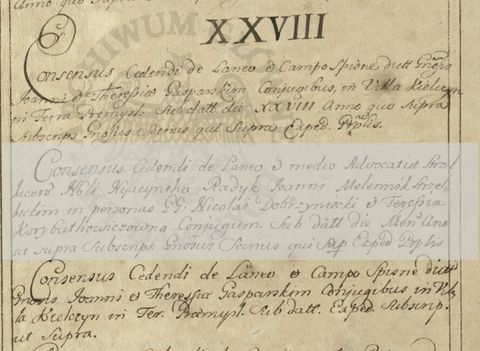 XXVIII
Consensus Cedendi de Laneo et Campo Spisne dictt Gnosis
Joanni & Theressiæ Gasparskim Conjugibus, in Villa Kielczyn
in Terra Præmysl. Sub datt die XXVIII Anno quo Supra
Subscrip. qui Supra Exped. Pptis.
Consensus Cedendi de Laneo & medio Advocatiæ Strzel
bicens Nbli Hyacyntho Radyk Joanni Melennik Strzel
bickim in personas GG. Nicolai Dobrzyniecki & Teressia
Korybuthowiczowna Conjugum. Sub datt die Men. Ano
ut supra Subscrip. qui Sup Exped Pptis
Consensus Cedendi de Laneo & Campo Spisne dictt
Gnosis Joanni & Theressiæ Gasparskim Conjugibus in Vil
la Kielczyn in Ter. Præmysl. Sub datt. Exped. Subscrip.
ut Supra.